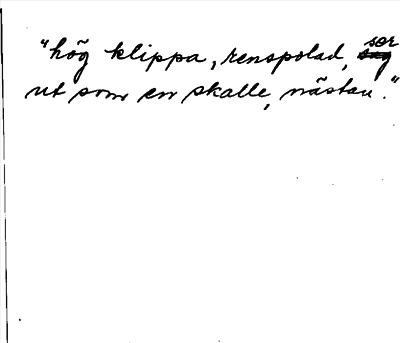 "hög klippa, renspolad, ser
ut som en skalle, nästan."